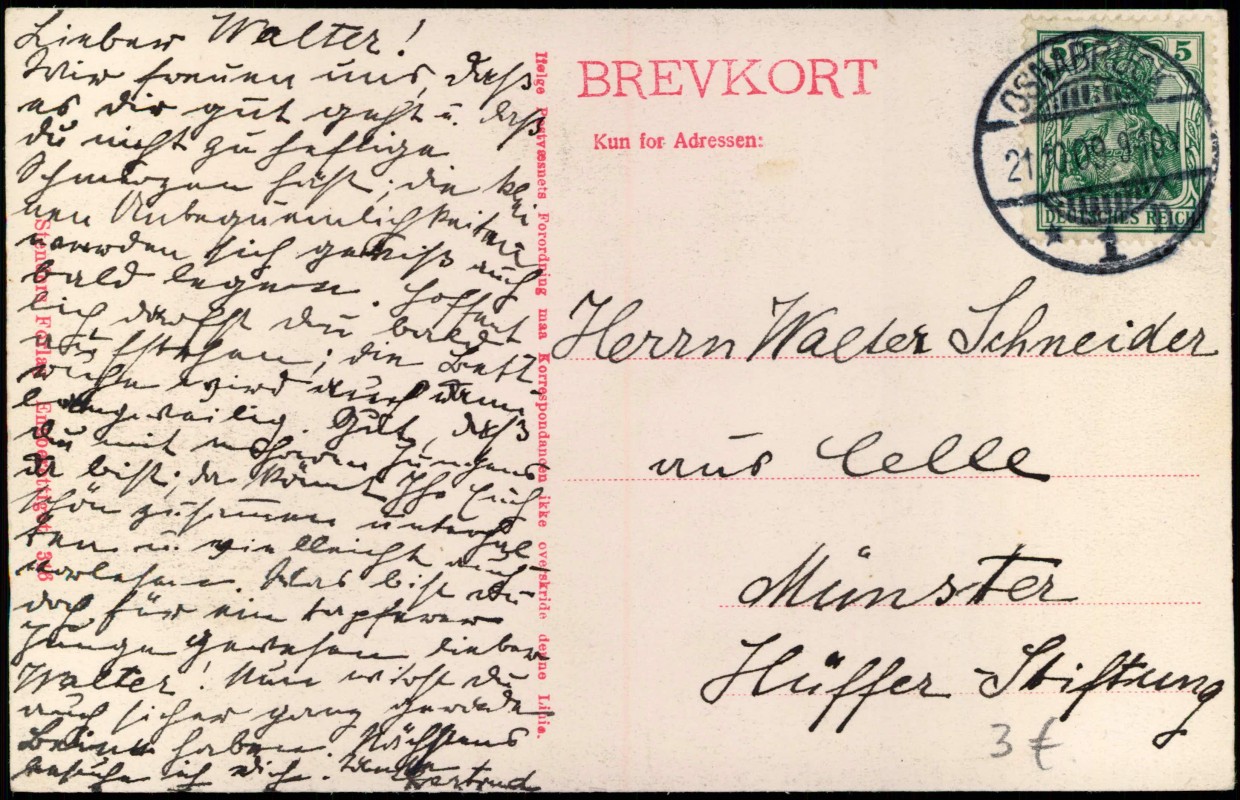 Lieber Walter!
Wir freuen uns, daß
es dir gut geht u. daß
du nicht zu heftige
Schmerzen hast; die klei
nen Unbequemlichkeiten
werden sich gewiß auch
bald legen. Hoffent
lich darfst du bald
aufstehen; die Bett
wird auch
langweilig. Gut, daß
du mit mehreren Jungens
da bist; da könnt Ihr Euch
schön zusammen unterhal
ten u. vielleicht auch
vorlesen. Was bist du
doch für ein tapferer
Junge gewesen lieber
Walter! Nun wirst du
auch sicher ganz gerade
Beine haben. Nächstens
besuche ich dich. Tante Gertrud
Stenders Forlag Eneberettiget 
Ifølge Postvæsnets Forordning maa Korrespondancen ikke overskride denne Linie.
BREVKORT
Kun for Adressen:
OSNABRÜCK
21.10.09. 9-10
* 1
5
DEUTSCHES REICH
Herrn Walter Schneider
aus Celle
Münster
Hüffer-Stiftung
3 €